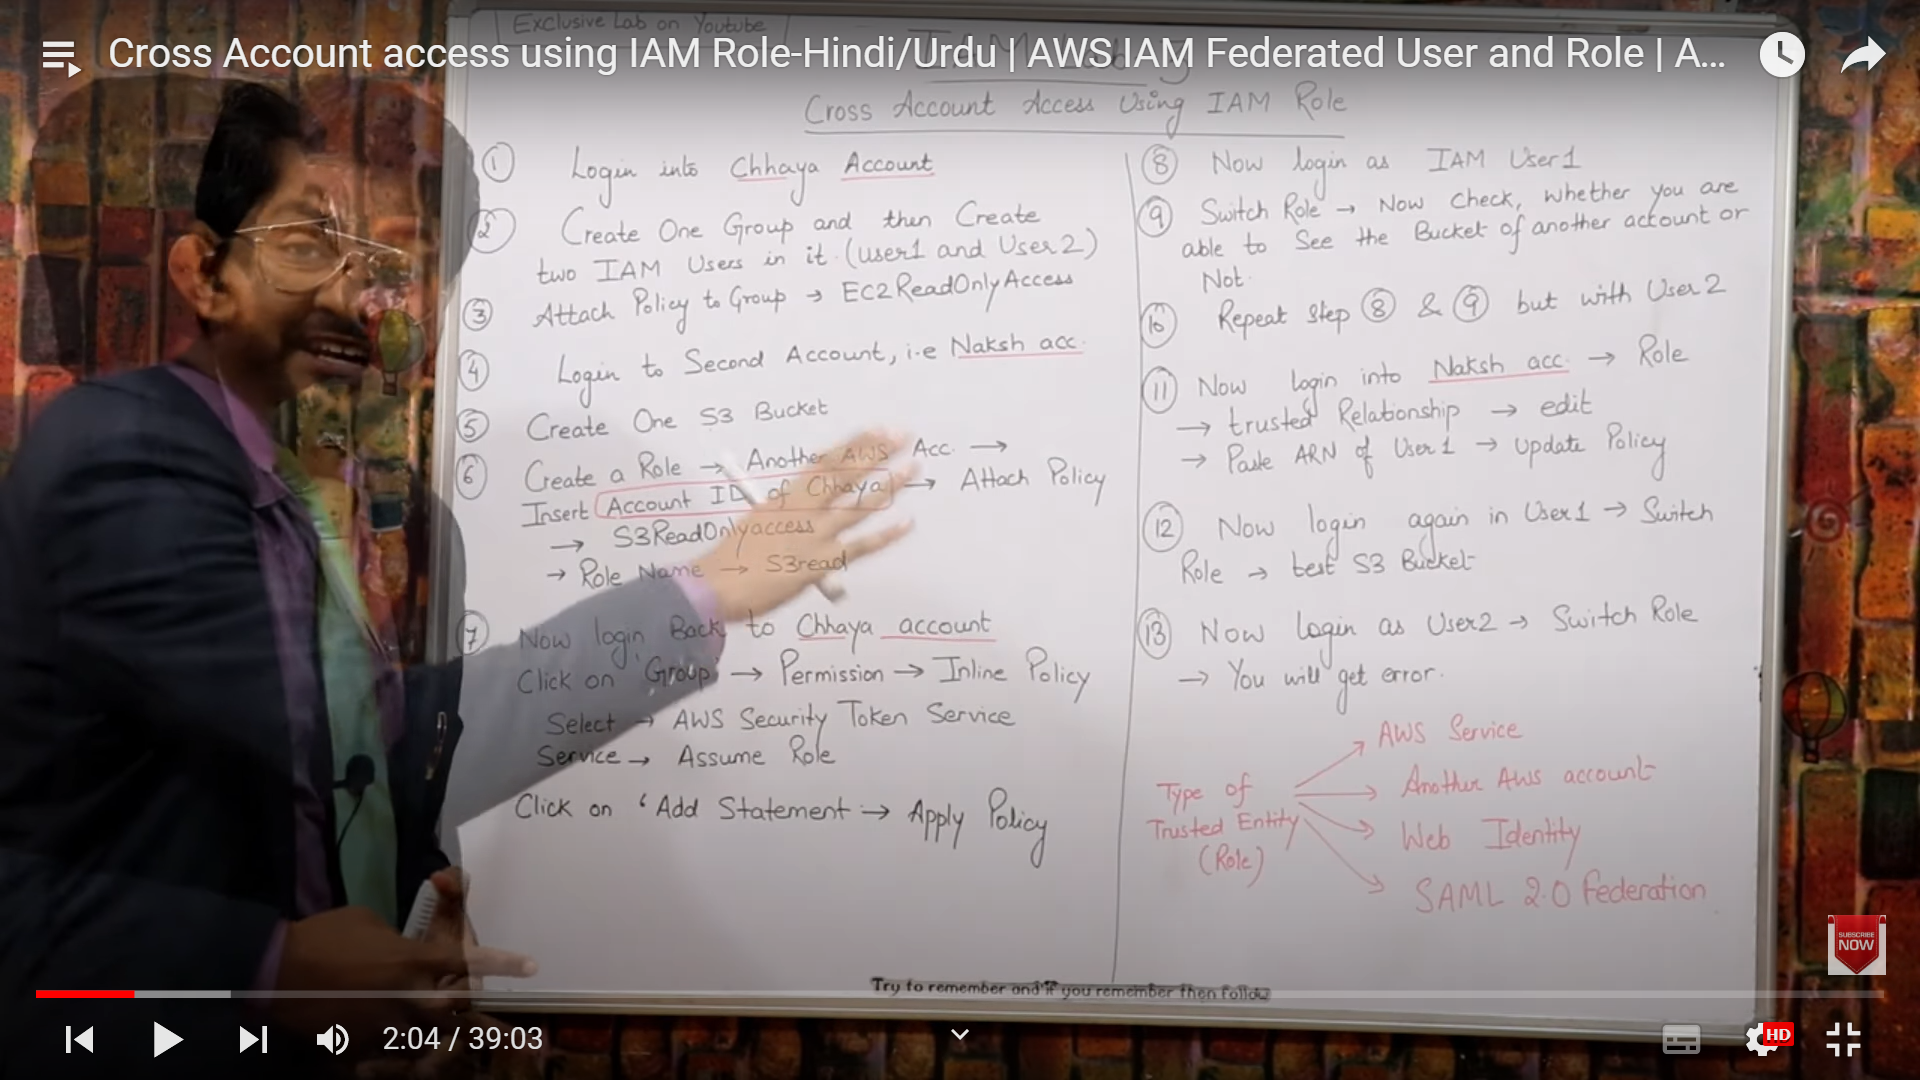 Exclusive Lab on Youtube
Cross Account access using IAM Role-Hindi/Urdu | AWS IAM Federated User and Role | A...
Cross Account Access Using IAM Role
① Login into Chhaya Account
② Create One Group and then Create
two IAM Users in it. (user1 and User2)
③ Attach Policy to Group → EC2ReadOnlyAccess
④ Login to Second Account, i.e Naksh acc.
⑤ Create One S3 Bucket
⑥ Create a Role → Another AWS Acc. →
Insert Account ID of Chhaya → Attach Policy
→ S3ReadOnlyaccess
→ Role Name → S3read
⑦ Now login Back to Chhaya account
Click on 'Group' → Permission → Inline Policy
Select → AWS Security Token Service
Service → Assume Role
Click on 'Add Statement → Apply Policy
⑧ Now login as IAM User1
⑨ Switch Role → Now Check, Whether you are
able to See the Bucket of another account or
Not.
⑩ Repeat Step ⑧ & ⑨ but with User2
⑪ Now login into Naksh acc. → Role
→ trusted Relationship → edit
→ Paste ARN of User1 → Update Policy
⑫ Now login again in User1 → Switch
Role → test S3 Bucket
⑬ Now Login as User2 → Switch Role
→ You will get error.
Type of
Trusted Entity
(Role)
AWS Service
Another Aws account
Web Identity
SAML 2.0 Federation
SUBSCRIBE
NOW
Try to remember and if you remember then follow
2:04 / 39:03
HD